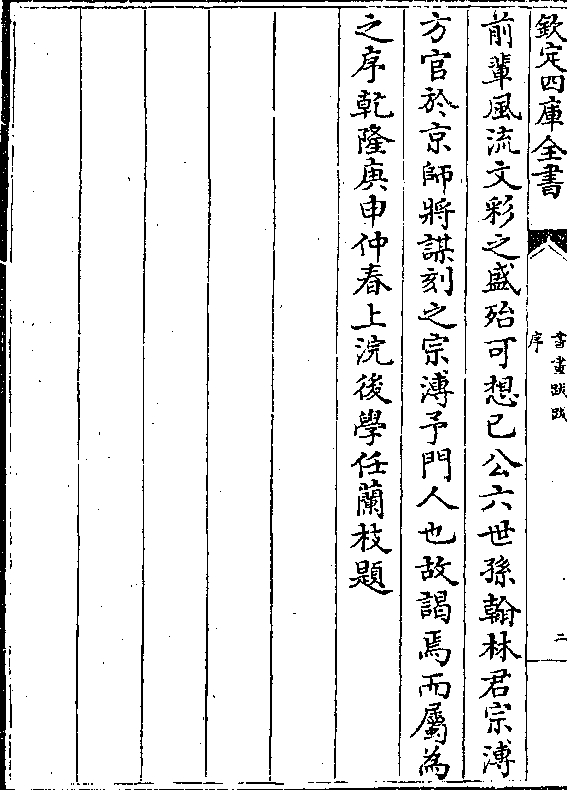 欽定四庫全書
書畫跋跋
序
二
前輩風流文彩之盛殆可想已公六世孫翰林君宗溥
方官於京師將謀刻之宗溥予門人也故謁焉而屬為
之序乾隆庚申仲春上浣後學任蘭枝題